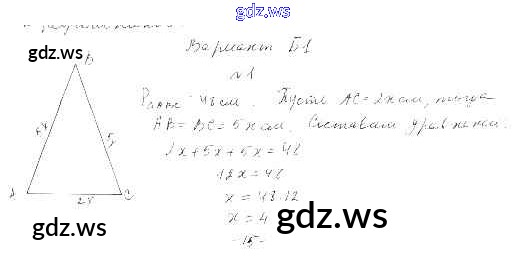 gdz.ws
Вариант Б1
gdz.ws
B
№1
P ABC = 48 см. Пусть AC = 2x см, тогда
AB = BC = 5x см. Составим уравнение:
5x
5x
2x + 5x + 5x = 48
12x = 48
x = 48:12
A
2x
C
x = 4
gdz.ws
gdz.ws
-15-